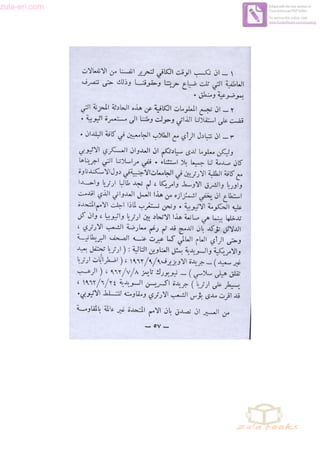 zula-eri.com
١ ـ ان نكسب الوقت الكافي لتحرير انفسنا من الانفعالات
العاطفية التي تلت ضياع حريتنا وحقوقنا وذلك حتى نتصرف
بموضوعية ومنطق ٠
٢ ـ ان نجمع المعلومات الكافية عن هذه الحادثة المحزنة التي
قضت على استقلالنا الذاتي وحولت وطننا الى مستعمرة اثيوبية ٠
٣ ـ ان نتبادل الرأي مع الطلاب الجامعيين في كافة البلدان ٠
وليكن معلوما لدى سيادتكم ان العدوان العسكري الاثيوبي
كان صدمة لنا جميعا بلا استثناء ٠ ففي مراسلاتنا التي اجريناها
مع كافة الطلبة الارتريين في الجامعات الاجنبية في دول الاسكندناوة
واوربا والشرق الاوسط وامريكا ، لم نجد طالبا ارتريا واحدا
استطاع ان يخفي اشمئزازه من هذا العمل العدواني الذي اقدمت
عليه الحكومة الاثيوبية ٠ ونحن نستغرب لماذا اجلت الامم المتحدة
تدخلها بينما هي صانعة هذا الاتحاد بين ارتريا واثيوبيا ، وان كل
الدلائل تؤكد بان الدمج قد تم رغم معارضة الشعب الارتري ،
وحتى الرأي العام العالمي كما عبرت عنه الصحف البريطانية
والامريكية والسويدية بمثل العناوين التالية : ( ارتريا تحتفل بعيد
غير سعيد ) ـ جريدة الاوبزيرفر ١٩٦٢/٩/٩ ، ( اضطرابات ارتريا
تقلق هيلى سلاسي ) ـ نيويورك تايمز ٩٦٢/٧/٨ ، ( الرعب
يسيطر على ارتريا ) جريدة اكسبريسن السويدية ١٩٦٢/٦/٢٤ ،
قد اقرت مدى بؤس الشعب الارتري ومقاومته للتسلط الاثيوبي٠
من العسير ان نصدق بان الامم المتحدة غير عالمة بالمقاومة
ـ ٥٧ ـ
zula books